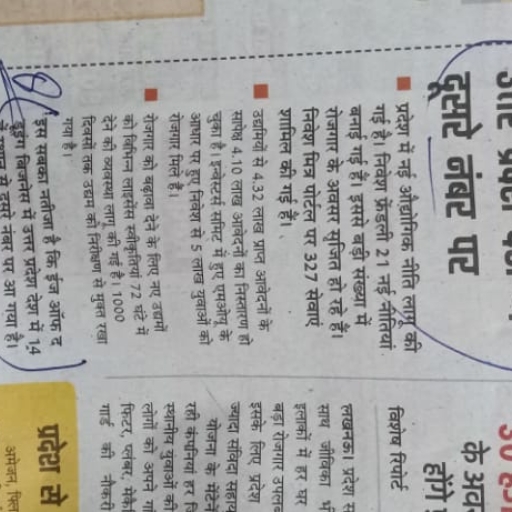 दूसरे नंबर पर
प्रदेश में नई औद्योगिक नीति लागू की
गई है। निवेश फ्रेंडली 21 नई नीतियां
बनाई गई है। इससे बड़ी संख्या में
रोजगार के अवसर सृजित हो रहे हैं।
निवेश मित्र पोर्टल पर 327 सेवाएं
शामिल की गई हैं।
उद्यमियों से 4.32 लाख प्राप्त आवेदनों के
सापेक्ष 4.10 लाख आवेदनों का निस्तारण हो
चुका है। इन्वेस्टर्स समिट में हुए एमओयू के
आधार पर हुए निवेश से 5 लाख युवाओं को
रोजगार मिले हैं।
रोजगार को बढ़ावा देने के लिए नए उद्योगों
को विभिन्न लाइसेंस स्वीकृतियां 72 घंटे में
देने की व्यवस्था लागू की गई है। 1000
दिवसों तक उद्यम को निरीक्षण से मुक्त रखा
गया है।
इस सबका नतीजा है कि ईज ऑफ द
बिजनेस में उत्तर प्रदेश देश में 14
से दूसरे नंबर पर आ गया है।
30 हजा
के अवस
होंगे
विशेष रिपोर्ट
लखनऊ। प्रदेश स
साथ जीविका
इलाकों में हर घर
बड़ा रोजगार उपलब
इसके लिए प्रदेश
ज्यादा संविदा सहाय
योजना के मेंटेने
रही कंपनियां हर
स्थानीय युवाओं को
लोगों को अपने गा
फिटर, प्लंबर, मैके
गार्ड की नौकरी
प्रदेश से